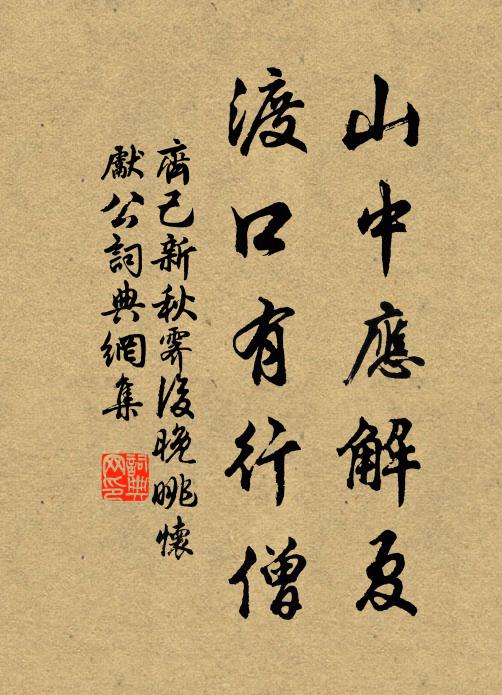 山中應解夏
渡口有行僧
齊己新秋霽後晚眺懷
獻公詞典網集
詞典
网印